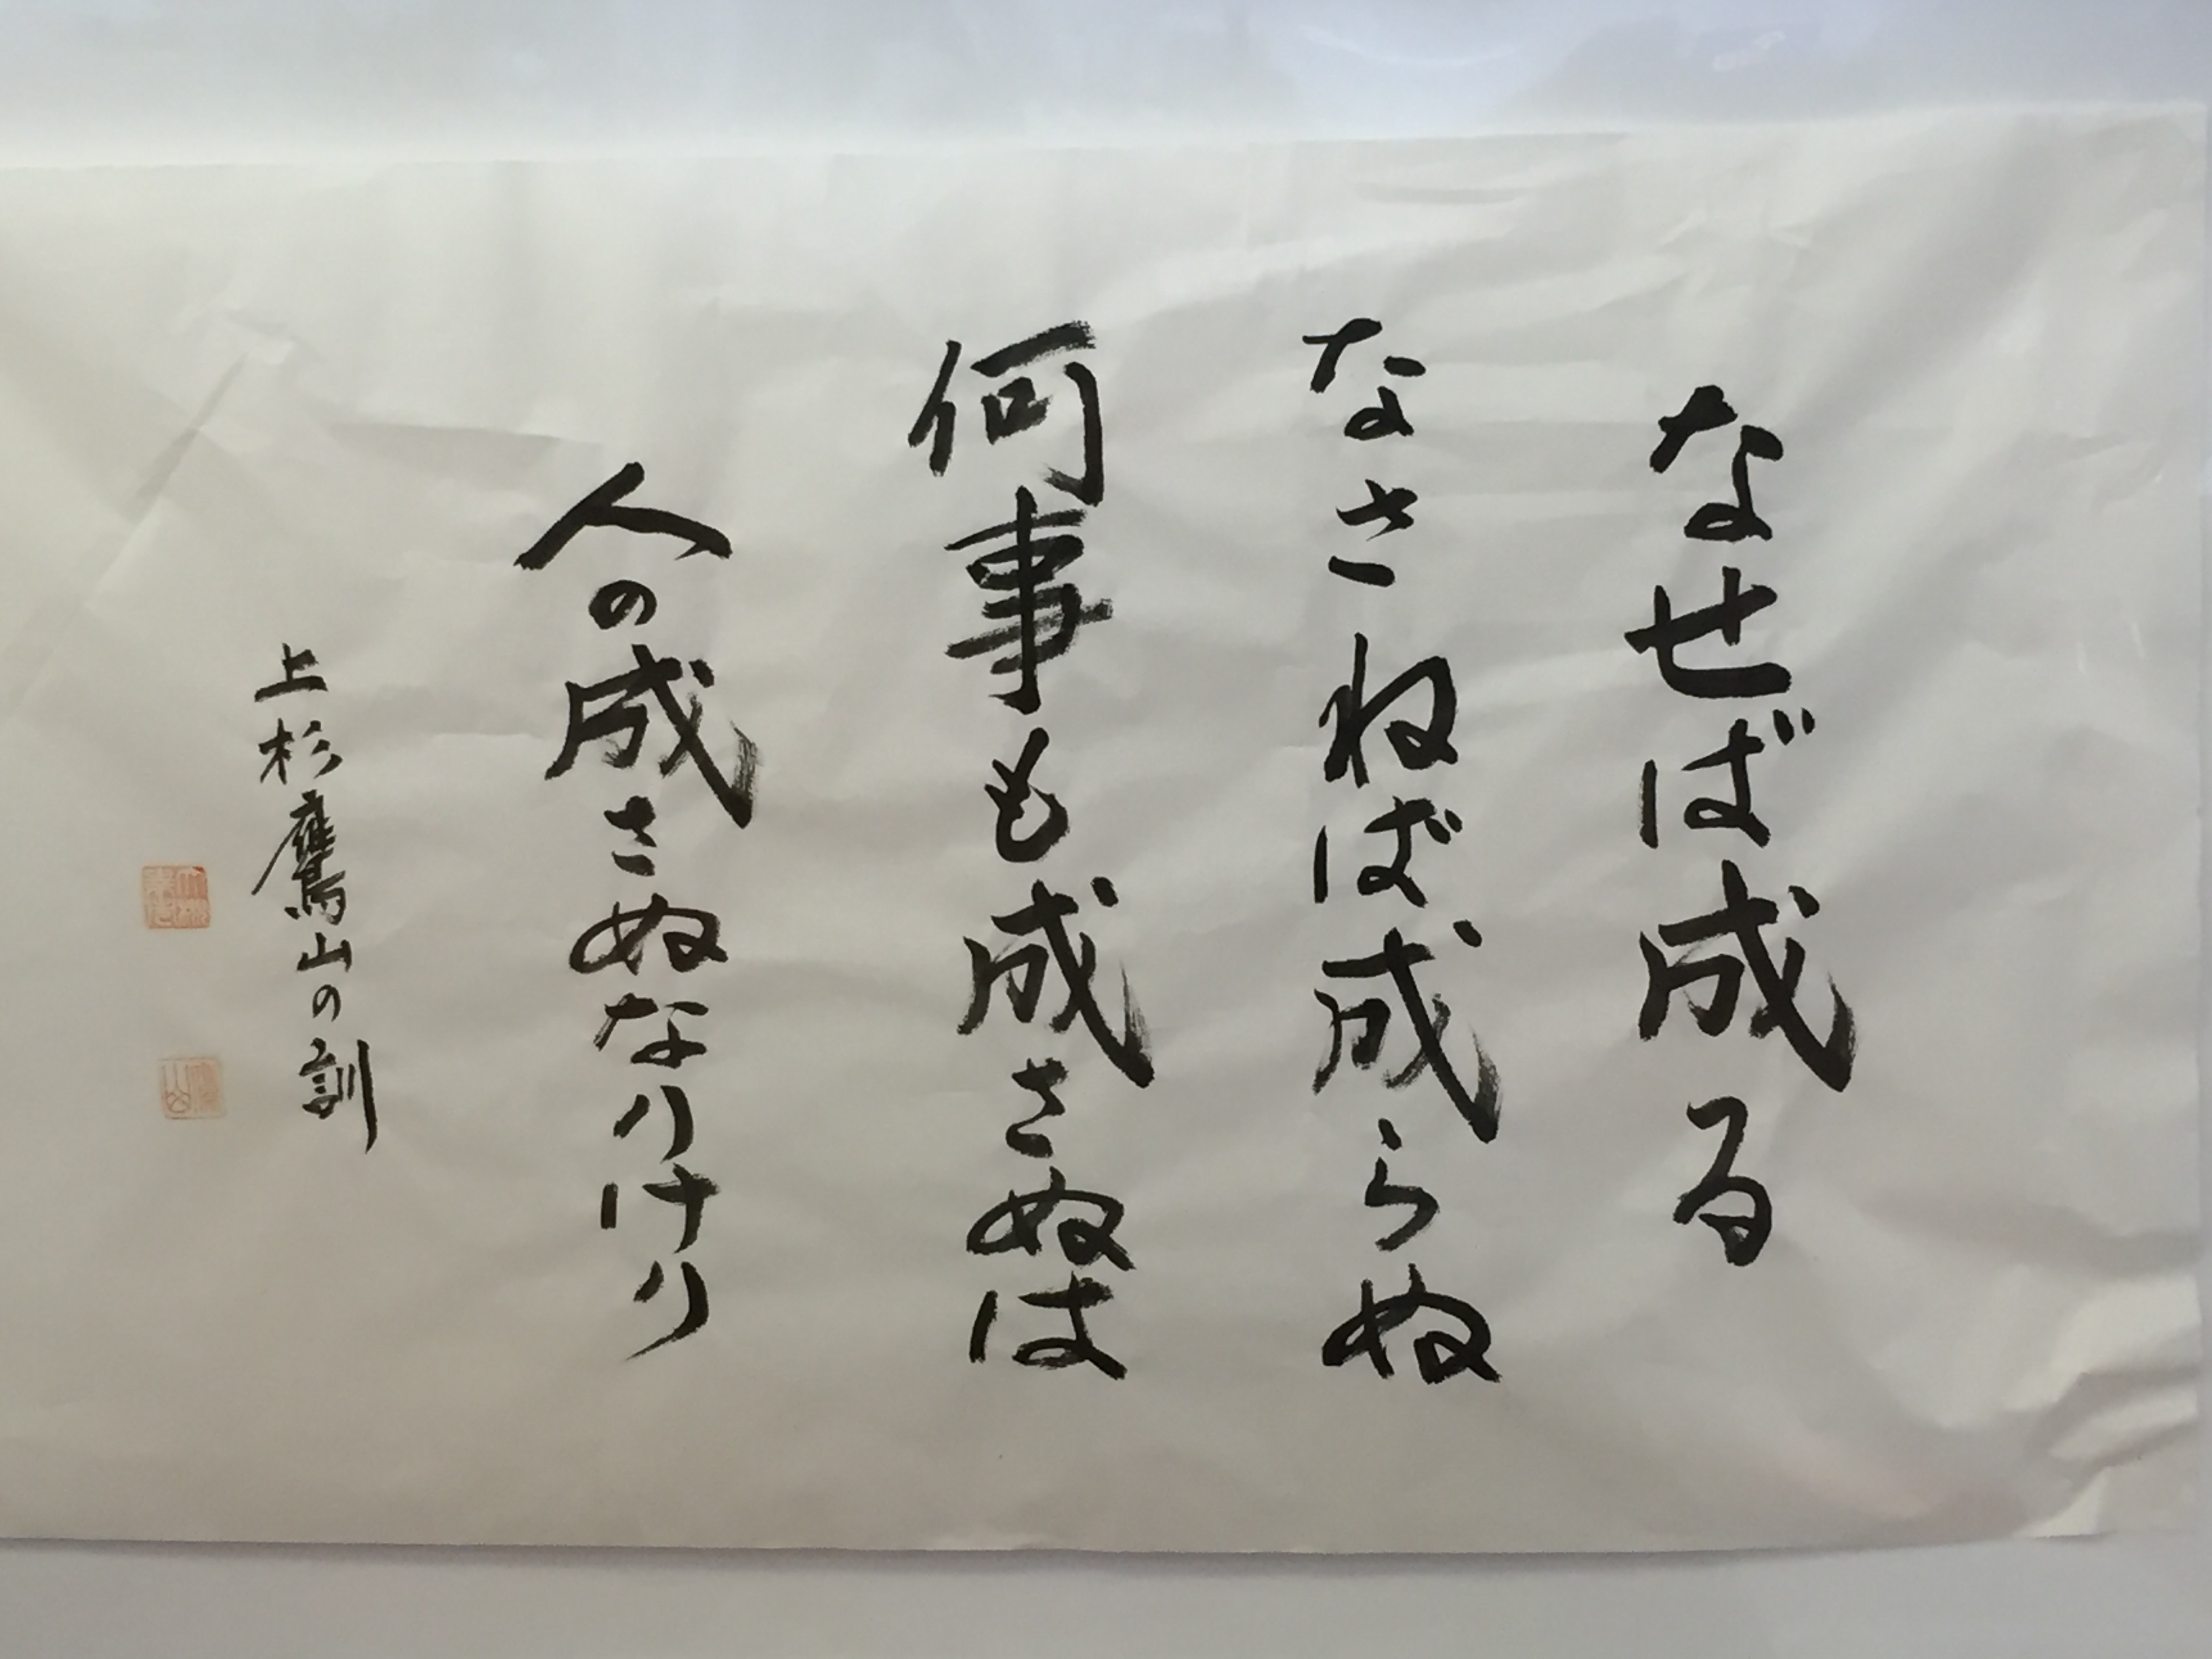 なせば成る
なさねば成らぬ
何事も成さぬは
人の成さぬなりけり
上杉鷹山の訓